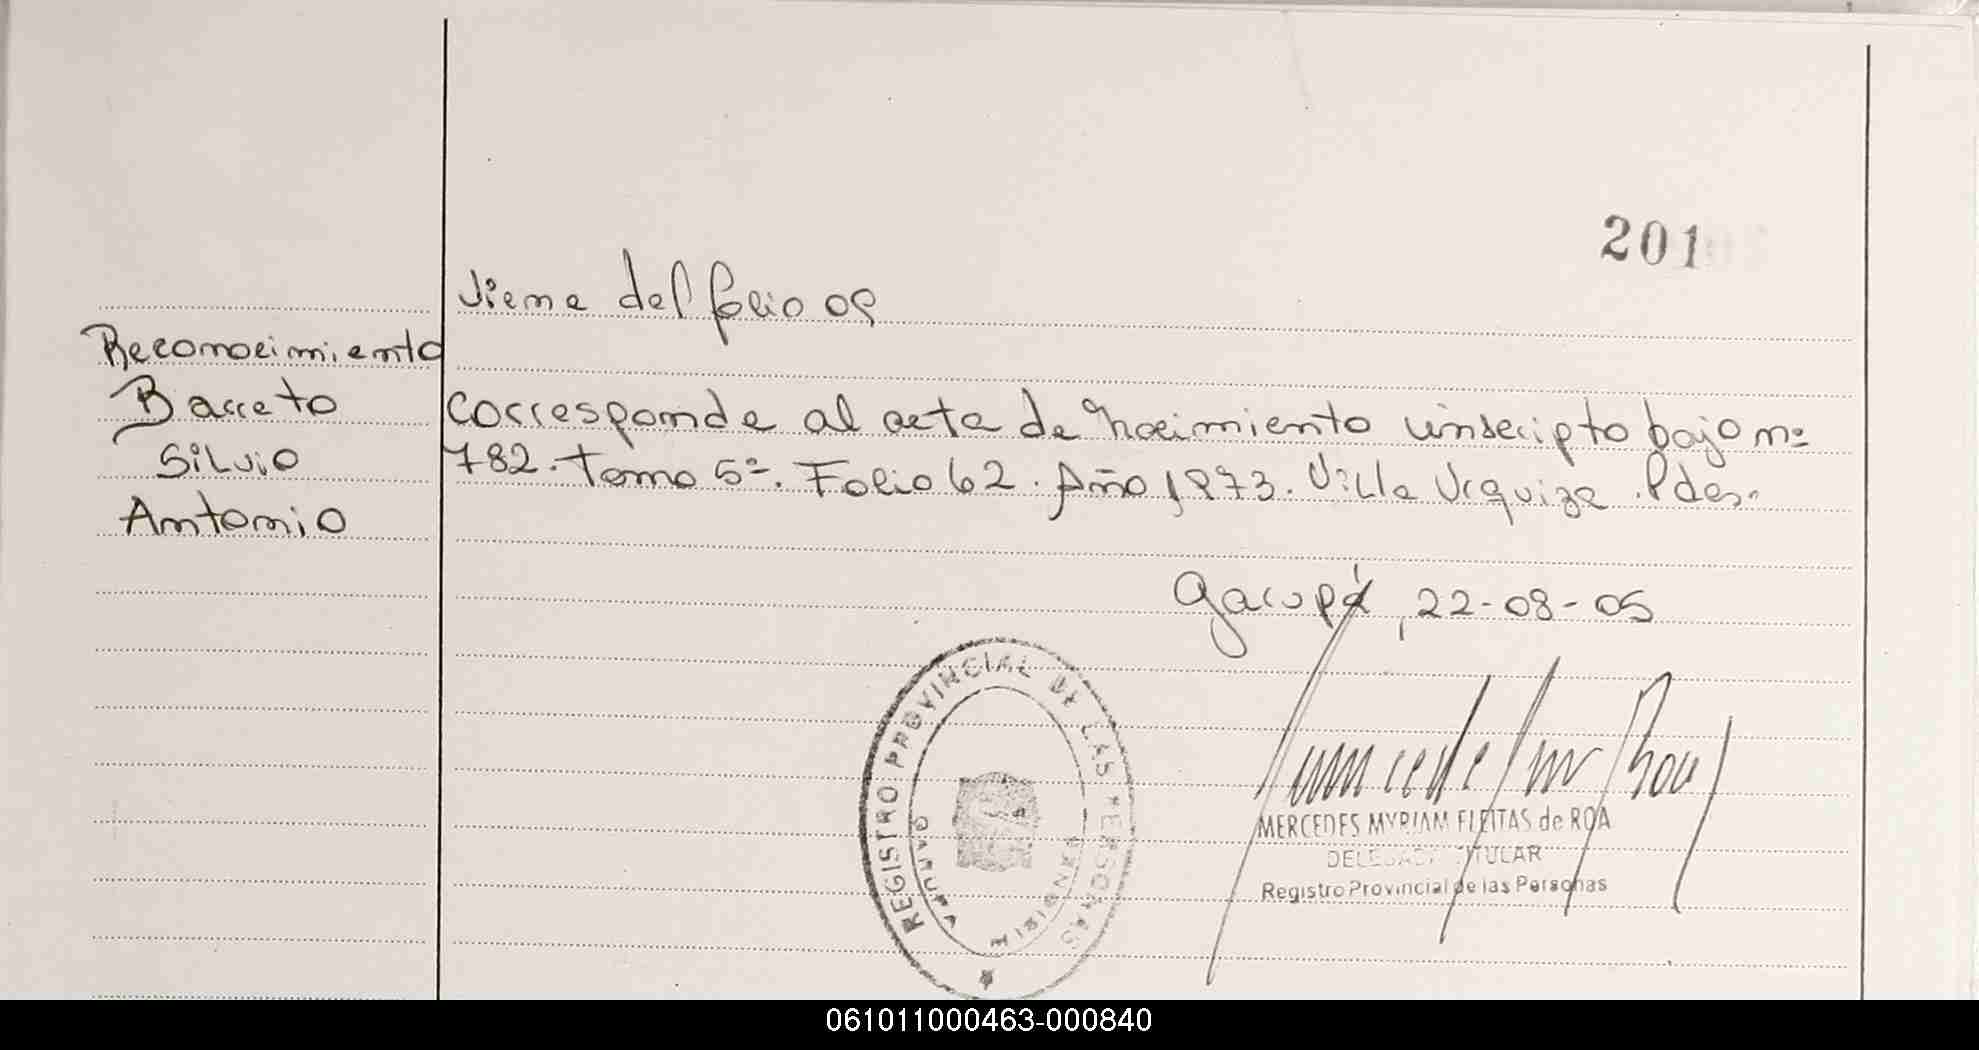 201
Viene del folio 09
Reconocimiento
Barreto
Silvio
Antonio
Corresponde al acta de nacimiento inscripto bajo nº
782. Tomo 5º. Folio 62. Año 1973. Villa Urquiza. Pdas.
Garupá, 22-08-05
REGISTRO PROVINCIAL DE LAS PERSONAS
MISIONES
MERCEDES MYRIAM FLEITAS de ROA
TITULAR
Registro Provincial de las Personas
061011000463-000840